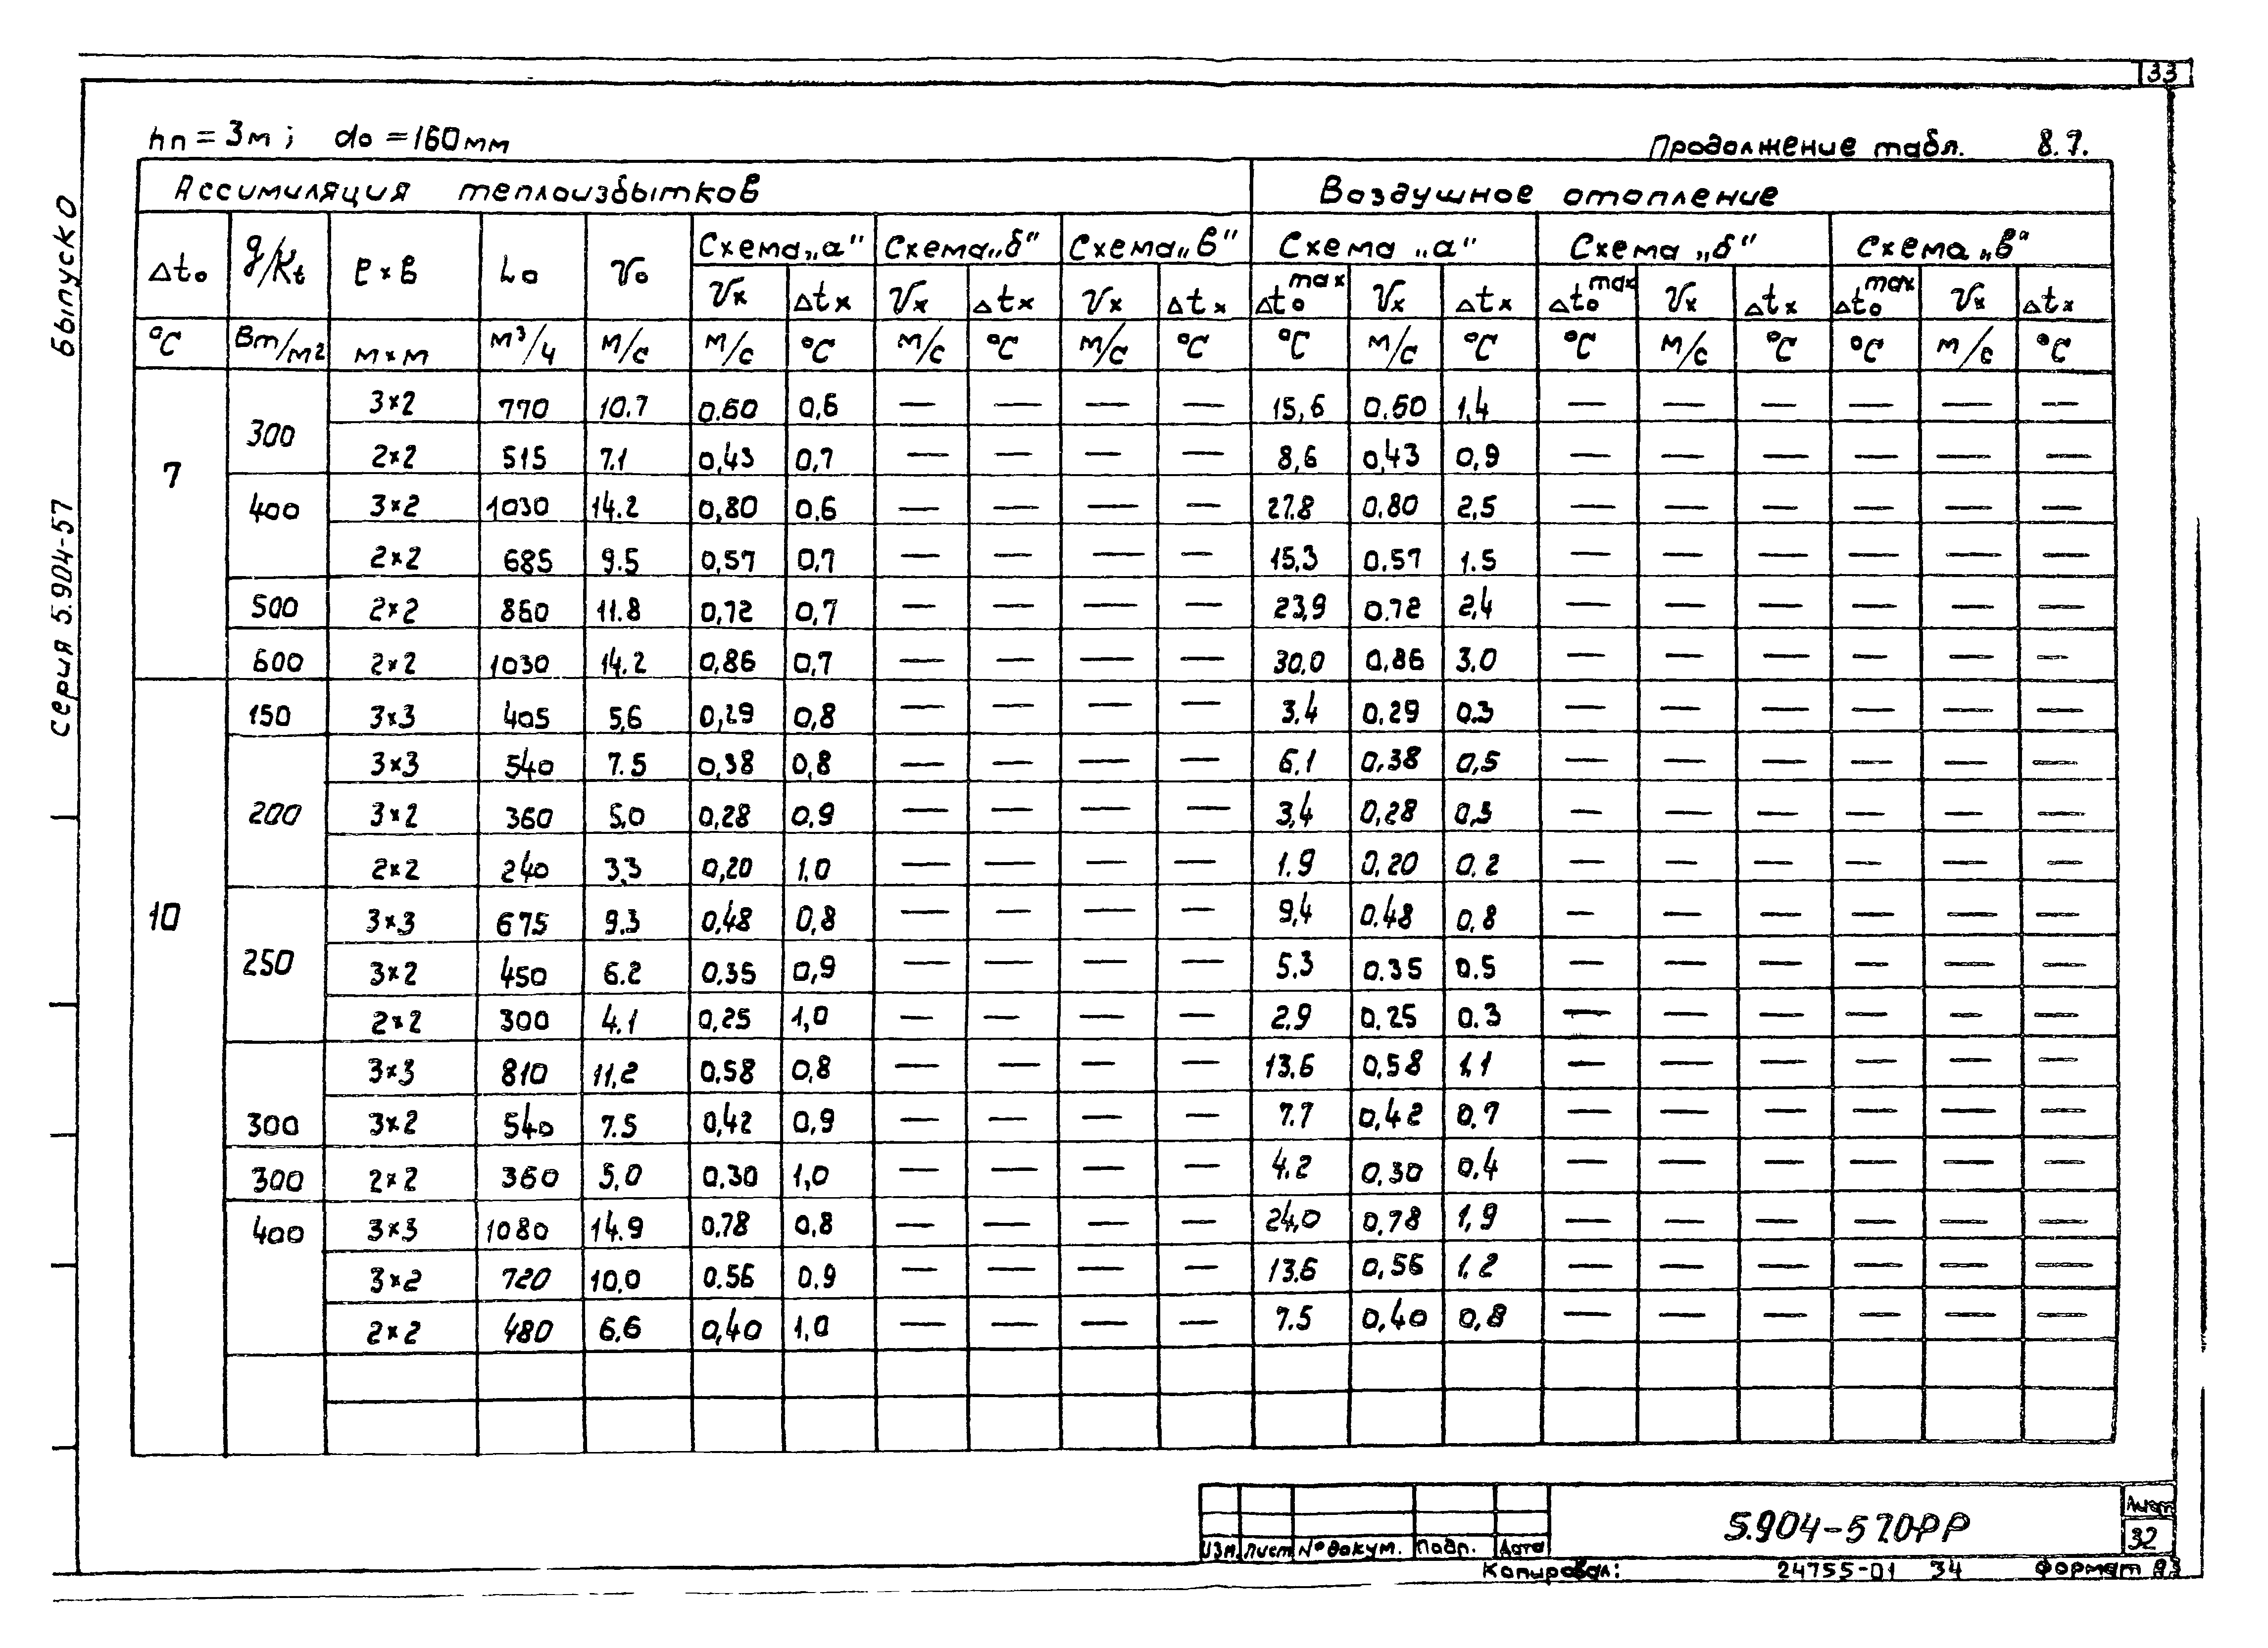 33
hп = 3м; do = 160мм Продолжение табл. 8.7.
Ассимиляция теплоизбытков Воздушное отопление
Δto q/Kt ℓ×в Lo Vo Схема „а" Схема „б" Схема „в" Схема „а" Схема „б" Схема „в"
Vx Δtx Vx Δtx Vx Δtx Δto max Vx Δtx Δto max Vx Δtx Δto max Vx Δtx
°C Вт/м² м×м м³/ч м/с м/с °C м/с °C м/с °C °C м/с °C °C м/с °C °C м/с °C
7 300 3×2 770 10.7 0.60 0,6 — — — — 15,6 0.60 1,4 — — — — — —
2×2 515 7.1 0,43 0,7 — — — — 8,6 0,43 0,9 — — — — — —
400 3×2 1030 14.2 0,80 0.6 — — — — 27.8 0.80 2,5 — — — — — —
2×2 685 9.5 0,57 0.7 — — — — 15,3 0.57 1.5 — — — — — —
500 2×2 860 11.8 0,72 0,7 — — — — 23,9 0.72 2,4 — — — — — —
600 2×2 1030 14.2 0,86 0,7 — — — — 30,0 0,86 3.0 — — — — — —
10 150 3×3 405 5,6 0,29 0,8 — — — — 3.4 0,29 0.3 — — — — — —
200 3×3 540 7.5 0,38 0,8 — — — — 6.1 0,38 0,5 — — — — — —
3×2 360 5,0 0,28 0,9 — — — — 3,4 0,28 0,3 — — — — — —
2×2 240 3,3 0,20 1.0 — — — — 1.9 0,20 0,2 — — — — — —
250 3×3 675 9.3 0,48 0,8 — — — — 9,4 0.48 0,8 — — — — — —
3×2 450 6.2 0,35 0,9 — — — — 5.3 0.35 0.5 — — — — — —
2×2 300 4.1 0,25 1,0 — — — — 2.9 0,25 0.3 — — — — — —
3×3 810 11,2 0.58 0,8 — — — — 13.6 0,58 1,1 — — — — — —
300 3×2 540 7.5 0,42 0,9 — — — — 7.7 0,42 0,7 — — — — — —
300 2×2 360 5,0 0.30 1,0 — — — — 4.2 0,30 0,4 — — — — — —
400 3×3 1080 14.9 0.78 0,8 — — — — 24,0 0,78 1,9 — — — — — —
3×2 720 10,0 0.56 0.9 — — — — 13.6 0,56 1,2 — — — — — —
2×2 480 6,6 0,40 1,0 — — — — 7.5 0,40 0,8 — — — — — —
серия 5.904-57 выпуск 0
5.904-57 0 РР
Лист
32
Изм. Лист № докум. Подп. Дата
Копировал: 24755-01 34 Формат А3